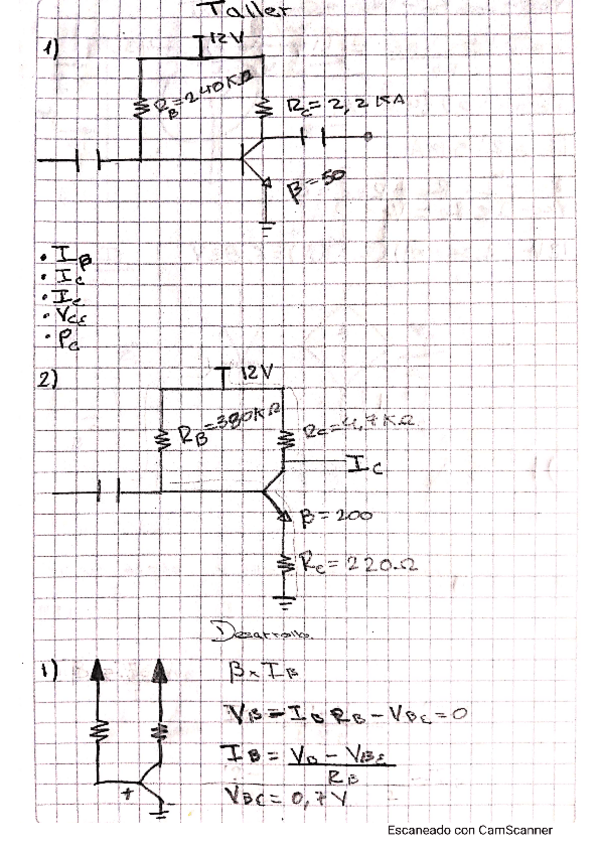 Taller
1)
12V
R_B=240KΩ
R_C=2,2KΩ
β=50
• I_β
• I_C
• I_C
• V_CE
• P_C
2)
12V
R_B=380KΩ
R_C=4,7KΩ
I_C
β=200
R_C=220Ω
Desarrollo
1)
β×I_B
V_B-I_B R_B-V_BE=0
I_B=V_B-V_BE
R_B
+
-
V_BC=0,7V
Escaneado con CamScanner